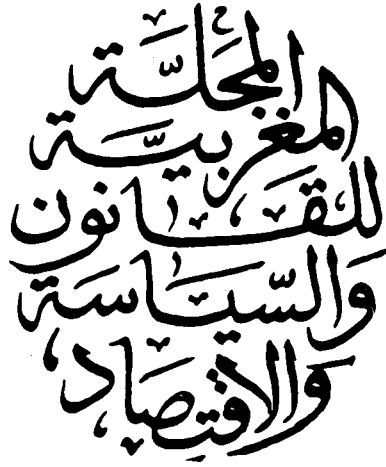 المجلة
المغربية
للقانون
والسّياسة
والاقتصاد